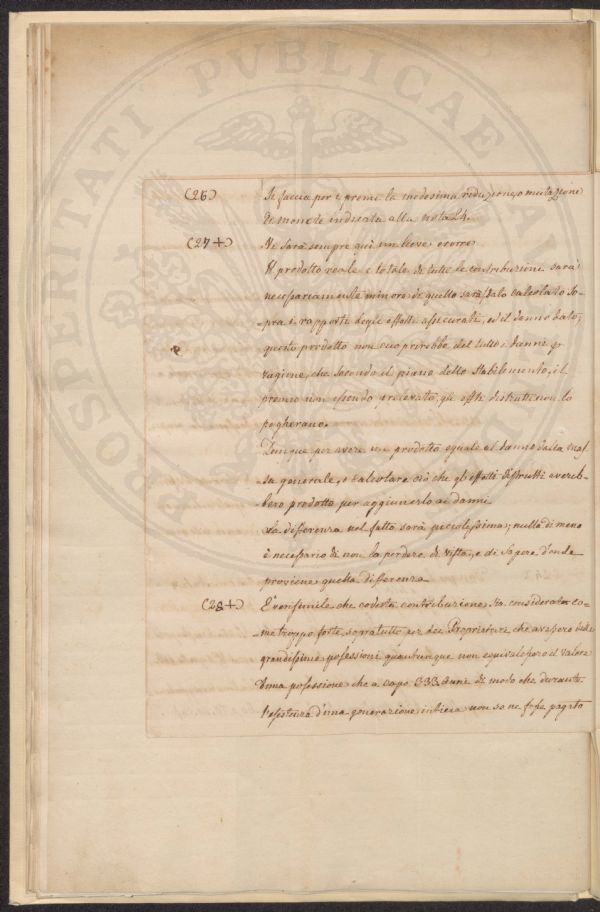 PROSPERITATI PVBLICAE
(26) Si faccia per i premi la medesima riduzione, o mutazione
di monete indicata alla nota 24.
(27+) Vi sarà sempre quì un lieve errore.
Il prodotto reale e totale di tutte le contribuzioni sarà
necessariamente minore di quello sarà stato calcolato so-
-pra i rapporti degli effetti assicurati, ed il danno dato,
questo prodotto non coprirebbe del tutto i danni p
ragione, che secondo il piano dello Stabilimento, il
premio non essendo prelevato, gli effetti distrutti non lo
pagherano.
Dunque per avere un prodotto eguale al danno dalla mas-
sa generale, calcolare ciò che gli effetti distrutti avereb-
bero prodotto per aggiunerlo ai danni
La differenza nel fatto sarà piccolissima; nulla di meno
è necessario di non la perdere di vista, e di sapere d'onde
proviene questa differenza
(28+) E' verisimile che codesta contribuzione sia considerata co-
me troppo forte, sopratutto per dei Proprietari che avessero
grandissime possessioni quantunque non equivalessero il valore
d'una possessione che a capo 333 anni di modo che durante
l'esistenza d'una generazione intiera non se ne fosse pagato